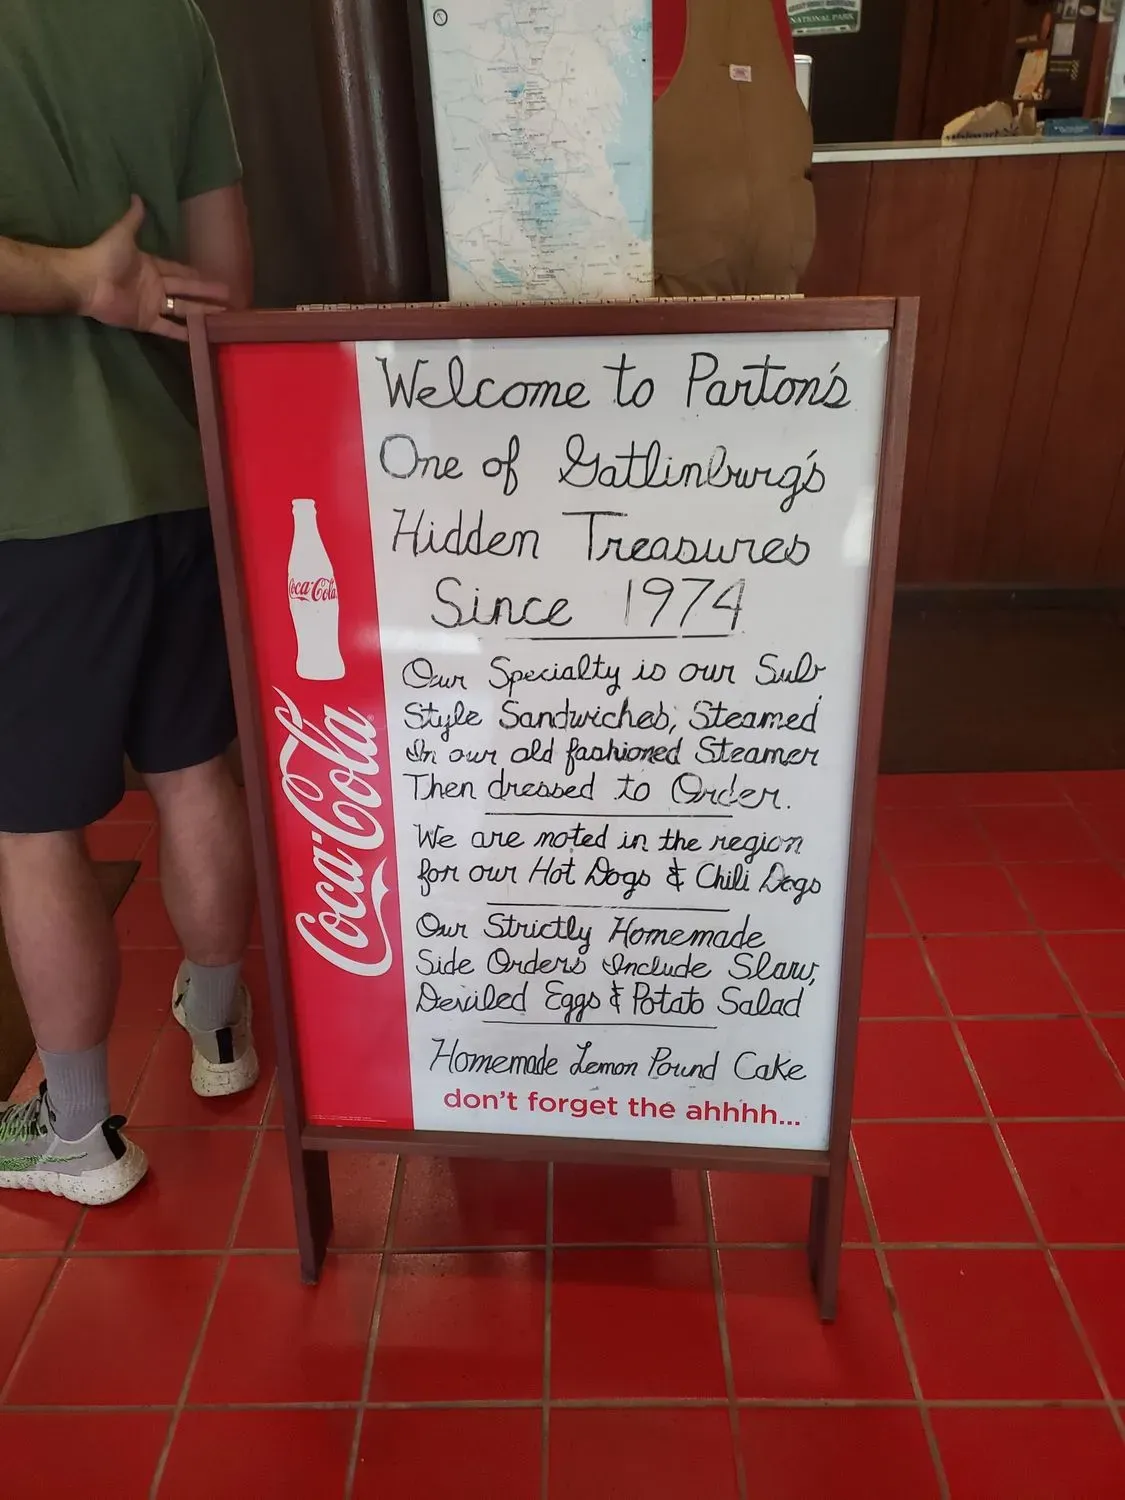 NATIONAL PARK
Welcome to Parton's
One of Gatlinburg's
Hidden Treasures
Since 1974
Our Specialty is our Sub
Style Sandwiches, Steamed
In our old fashioned Steamer
Then dressed to Order.
We are noted in the region
for our Hot Dogs & Chili Dogs
Our Strictly Homemade
Side Orders Include Slaw,
Deviled Eggs & Potato Salad
Homemade Lemon Pound Cake
don't forget the ahhhh...
Coca-Cola
Coca-Cola